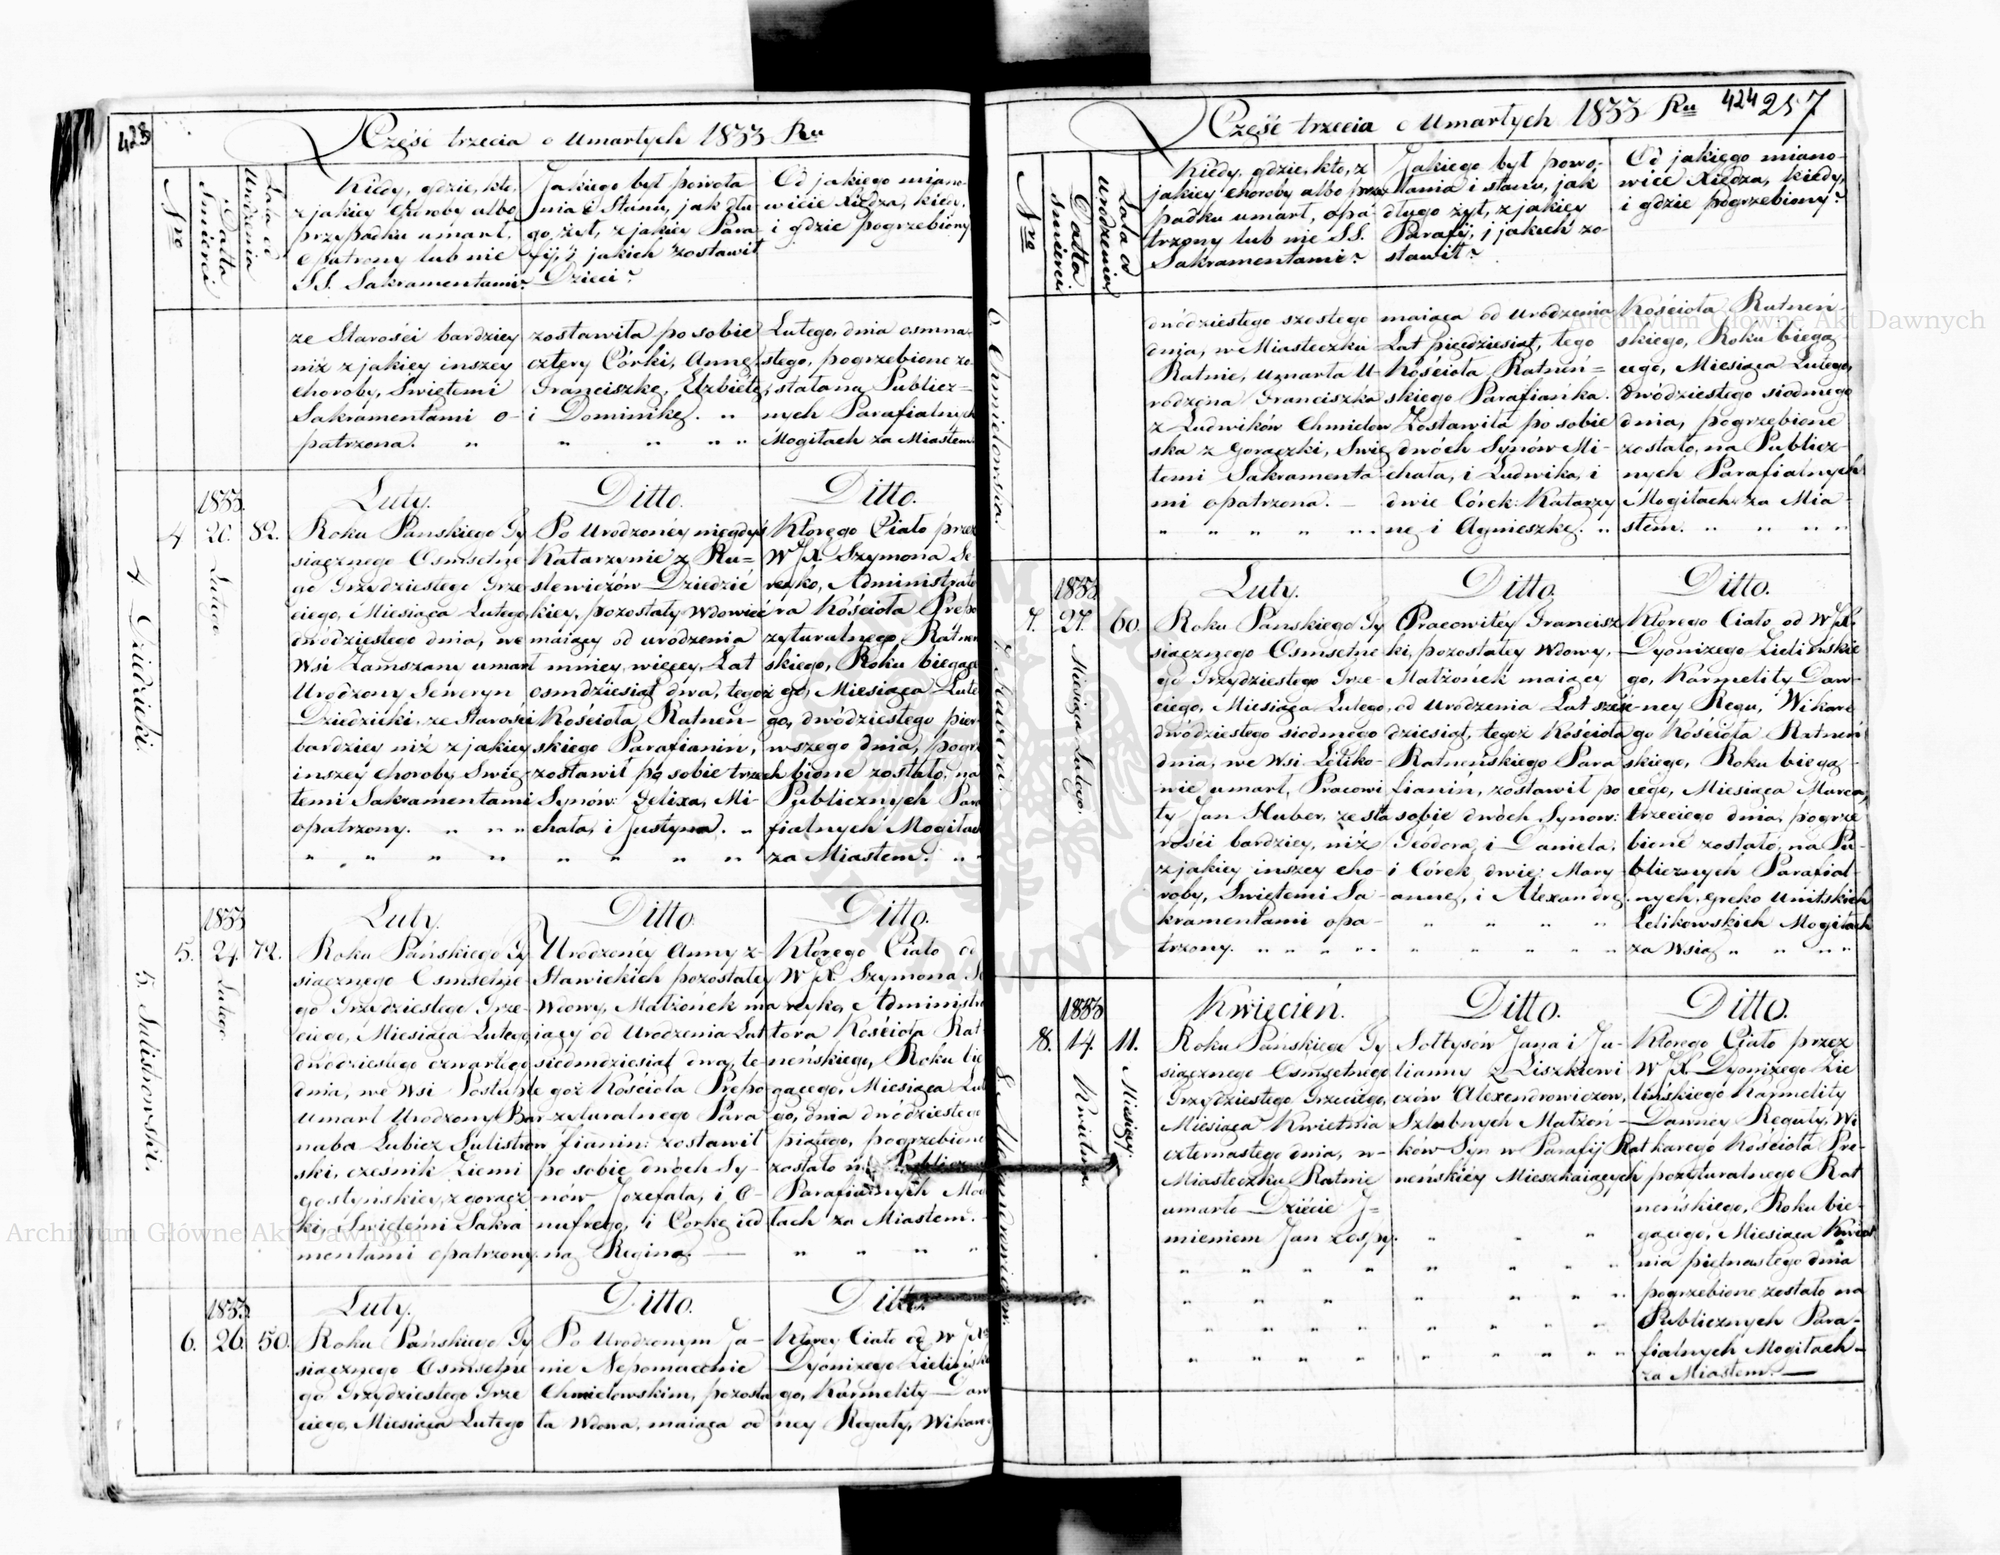 423
Część trzecia o Umarłych 1833 Ru
Nro
Datta Śmierci
Lata od Urodzenia
Kiedy, gdzie, kto,
z jakiey choroby albo
przypadku umarł,
opatrzony lub nie
SS. Sakramentami?
Jakiego był powoła
nia i Stanu, jak dłu
go żył, z jakiey Para
fij, i jakich zostawił
Dzieci?
Od jakiego miano
wicie Xiędza, kiedy,
i gdzie pogrzebiony
ze Starości bardziey
niż z jakiey inszey
choroby, Świętemi
Sakramentami o-
patrzona. "
zostawiła po sobie
cztery Córki, Annę,
Franciszkę, Elzbietę,
i Dominikę. "
" " " "
Lutego, dnia osmna-
stego, pogrzebione zo-
stało na Publicz=
nych Parafialnych
Mogiłach za Miastem
4 Dziedzicki.
4
1833
20. Lutego
82.
Luty.
Roku Pańskiego Ty
siącznego Osmsetne
go Trzydziestego Trze
ciego, Miesiąca Lutego,
dwódziestego dnia, we
Wsi Zamszany umarł
Urodzony Seweryn
Dziedzicki, ze Starości
bardziey niż z jakiey
inszey choroby, Swię
temi Sakramentami
opatrzony. " " "
" " " "
Ditto.
Po Urodzoney niegdyś
Katarzynie z Ru=
slewiczów Dziedzic
kiey, pozostały Wdowiec
maiący od urodzenia
mniey, więcey, Lat
osmdziesiąt dwa, tegoż
Kościoła Ratneń-
skiego Parafianin,
zostawił po sobie trzech
Synów: Felixa, Mi-
chała, i Justyna. "
" " " "
Ditto.
Którego Ciało przez
W JX. Szymona Se-
reyko, Administrato
ra Kościoła Prepo
zyturalnego Ratneń
skiego, Roku biegące
go, Miesiąca Lute
go, dwódziestego pier
wszego dnia, pogrze
bione zostało, na
Publicznych Para
fialnych Mogiłach
za Miastem. " "
5. Sulistrowski.
5.
1833
24 Lutego
72.
Luty.
Roku Pańskiego Ty
siącznego Osmsetne
go Trzydziestego Trze-
ciego, Miesiąca Lutego,
dwódziestego czwartego
dnia, we Wsi
Umarł Urodzony Bar
naba Lubicz Sulistrow
ski, czesnik Ziemi
gostyńskiey, z gorącz
ki, Świętemi Sakra
mentami opatrzony.
Ditto.
Urodzoney Anny z
Sławickich pozostałey
Wdowy, Małżonek ma
iący od Urodzenia Lat
siedmdziesiąt dwa, te-
goż Kościoła Prepo
zyturalnego Para
fianin: zostawił
po sobie dwóch Sy-
nów Jozefata, i O-
nufrego, i Corkę ied
ną Reginę. —
Ditto.
Którego Ciało od
W JX. Szymona Se
reyko, Administra
tora Kościoła Rat-
neńskiego, Roku bie
gącego, Miesiąca Lute
go, dnia dwódziestego
piątego, pogrzebione
zostało na Publicz
Parafialnych Mogi
łach za Miastem. -
" " " "
6.
1833.
26.
50.
Luty.
Roku Pańskiego Ty
siącznego Osmsetne
go Trzydziestego Trze
ciego, Miesiąca Lutego
Ditto.
Po Urodzonym Ja-
nie Nepomacenie
Chmielowskim, pozosta
ła Wdowa, maiąca od
Ditto.
Którey Ciało od W JX.
Dyonizego Zielińskie
go, Karmelity Daw
ney Reguły, Wikarego
424 257
Część trzecia o Umarłych 1833 Ru
Nro
Datta Śmierci
Lata od Urodzenia
Kiedy, gdzie, kto, z
jakiey choroby albo przy
padku umarł, opa-
trzony lub nie SS.
Sakramentami?
Jakiego był powo-
łania i stanu, jak
długo żył, z jakiey
Parafij, i jakich zo-
stawił?
Od jakiego miano-
wicie Xiędza, kiedy,
i gdzie pogrzebiony?
6. Chmielowska.
dwódziestego szostego
dnia, w Miasteczku
Ratnie, umarła U-
rodzona Franciszka
z Ludwików Chmielow
ska z Gorączki, Swię
temi Sakramenta-
mi opatrzona. —
" " " " "
maiąca od Urodzenia
Lat pięćdziesiąt, tego
Kościoła Ratneń=
skiego Parafianka.
Zostawiła po sobie
dwóch Synów Mi-
chała, i Ludwika, i
dwie Córek: Katarzy
nę i Agnieszkę. "
Kościoła Ratneń-
skiego, Roku biegą-
cego, Miesiąca Lutego,
dwódziestego siodmego
dnia, pogrzebione
zostało, na Publicz-
nych Parafialnych
Mogiłach za Mia-
stem. " " " "
7.
1833
27. Miesiąca Lutego.
60.
Luty.
Roku Pańskiego Ty
siącznego Osmsetne
go Trzydziestego Trze-
ciego, Miesiąca Lutego,
dwódziestego siodmego
dnia, we Wsi Leliko-
wie umarł, Pracowi
ty Jan Huber, ze sta
rości bardziey, niż
z jakiey inszey cho-
roby, Świętemi Sa-
kramentami opa-
trzony. " " " "
Ditto.
Pracowitey Francisz
ki, pozostałey Wdowy,
Małżonek maiący
od Urodzenia Lat sześć
dziesiąt, tegoż Kościoła
Ratneńskiego Para
fianin, zostawił po
sobie dwóch Synów:
Teodora, i Daniela,
i Córek, dwie: Mary
annę, i Alexandrę.
" " " "
" " " "
Ditto.
Którego Ciało, od W JX.
Dyonizego Zielińskie
go, Karmelity Daw-
ney Reguł, Wikare
go Kościoła Ratneń
skiego, Roku biegą-
cego, Miesiąca Marca,
trzeciego dnia, pogrze
bione zostało, na Pu-
blicznych Parafial-
nych, greko Unitskich
Lelikowskich Mogiłach
za Wsią " " " "
8. Alexandrowiczow.
8.
1833
14. Kwietnia
11. Miesięcy.
Kwiecień.
Roku Pańskiego Ty
siącznego Osmsetnego
Trzydziestego Trzeciego,
Miesiąca Kwietnia
czternastego dnia, w-
Miasteczku Ratnie
umarło Dziécie I=
mieniem Jan z ospy.
" " " "
" " " "
" " " "
" " " "
Ditto.
Sołtysów Jana i Ju-
lianny z Liszkiewi
czów Alexandrowiczow,
Szlubnych Małżon-
ków Syn w Parafij Rat
neńskiéy Mieszkaiących
" " "
" " " "
" " " "
" " " "
" " " "
Ditto.
Którego Ciało przez
W JX. Dyonizego Zie
lińskiego Karmelity
Dawney Reguły, Wi
karego Kościoła Pre-
pozyturalnego Rat
neńskiego, Roku bie-
gącego, Miesiąca Kwiet
nia piętnastego dnia
pogrzebione zostało na
Publicznych Para-
fialnych Mogiłach
za Miastem. —
Archiwum Główne Akt Dawnych
Archiwum Główne Akt Dawnych